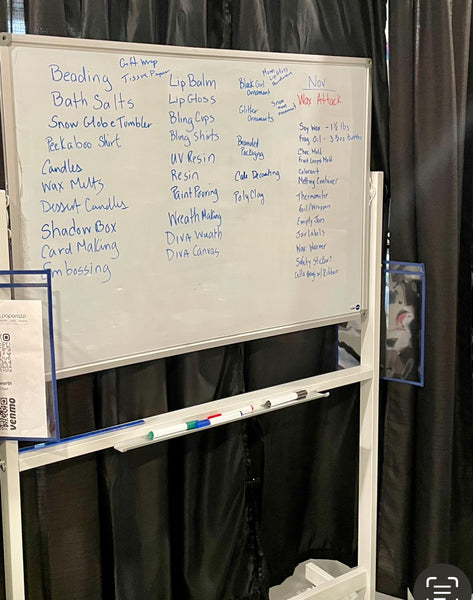 Gift Wrap
Tissue Paper
Beading
Bath Salts
Snow Globe Tumbler
Peekaboo Shirt
Candles
Wax Melts
Dessert Candles
Shadow Box
Card Making
Embossing
Lip Balm
Lip Gloss
Bling Cups
Bling Shirts
UV Resin
Resin
Paint Pouring
Wreath Making
Diva Wreath
Diva Canvas
Black Girl
Ornament
Glitter
Ornaments
Snow
Branded
Packaging
Cake Decorating
Poly Clay
Nov
Wax Attack
Soy Wax - 1½ lbs
Frag Oil - 3 Boz Bottles
Choc Mold
Fruit Loops Mold
Colorant
Melting Container
Thermometer
Foil/Wrapper
Empty Jars
Jar Labels
Wax Warmer
Safety Stickers
Cello Bags w/ Ribbon
paparazzi
worth
venmo